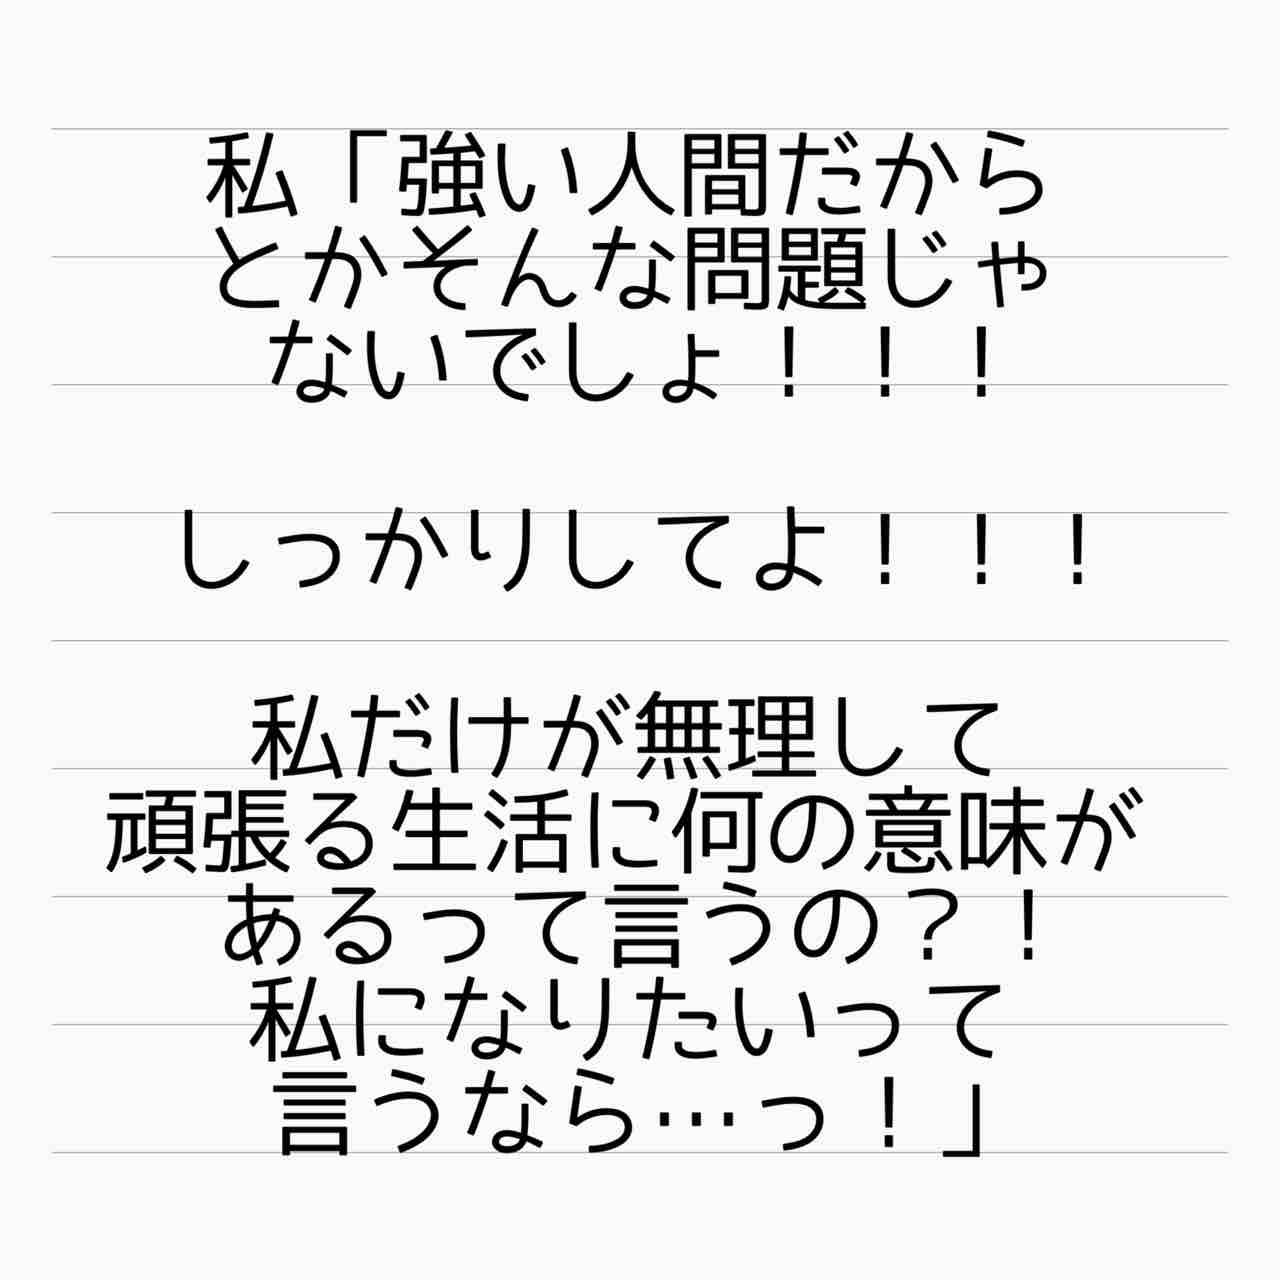 私「強い人間だから
とかそんな問題じゃ
ないでしょ！！！
しっかりしてよ！！！
私だけが無理して
頑張る生活に何の意味が
あるって言うの？！
私になりたいって
言うなら…っ！」